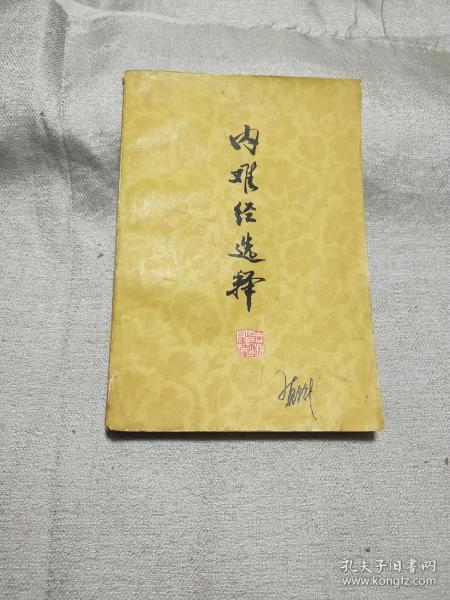 内难经选释
孔夫子旧书网
www.kongfz.com